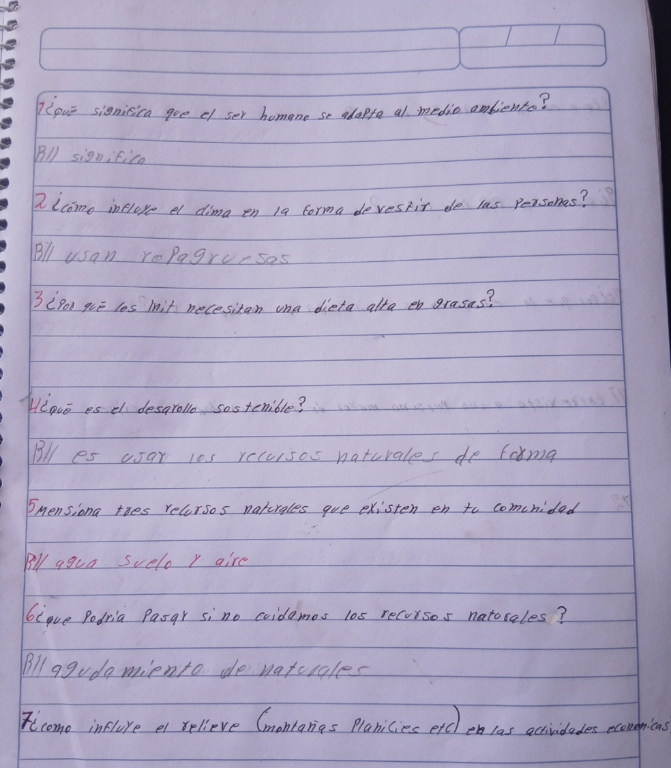 1¿què significa que el ser humano se adapta al medio ambiente?
R// significa
2¿cómo influye el clima en la forma de vestir de las Personas?
R// usan ropa gruesas
3¿Por què les Init necesitan una dieta alta en grasas?
4¿què es el desarollo sostenible?
R// es usar los recursos naturales de forma
5 Mensiona tres recursos naturales que existen en tu comunidad
R// agua suelo y aire
6¿que Podria Pasar si no cuidamos los recursos naturales?
R// agudamiento de naturales
7¿como influye el relieve (montañas Planicies etc) en las actividades economicas